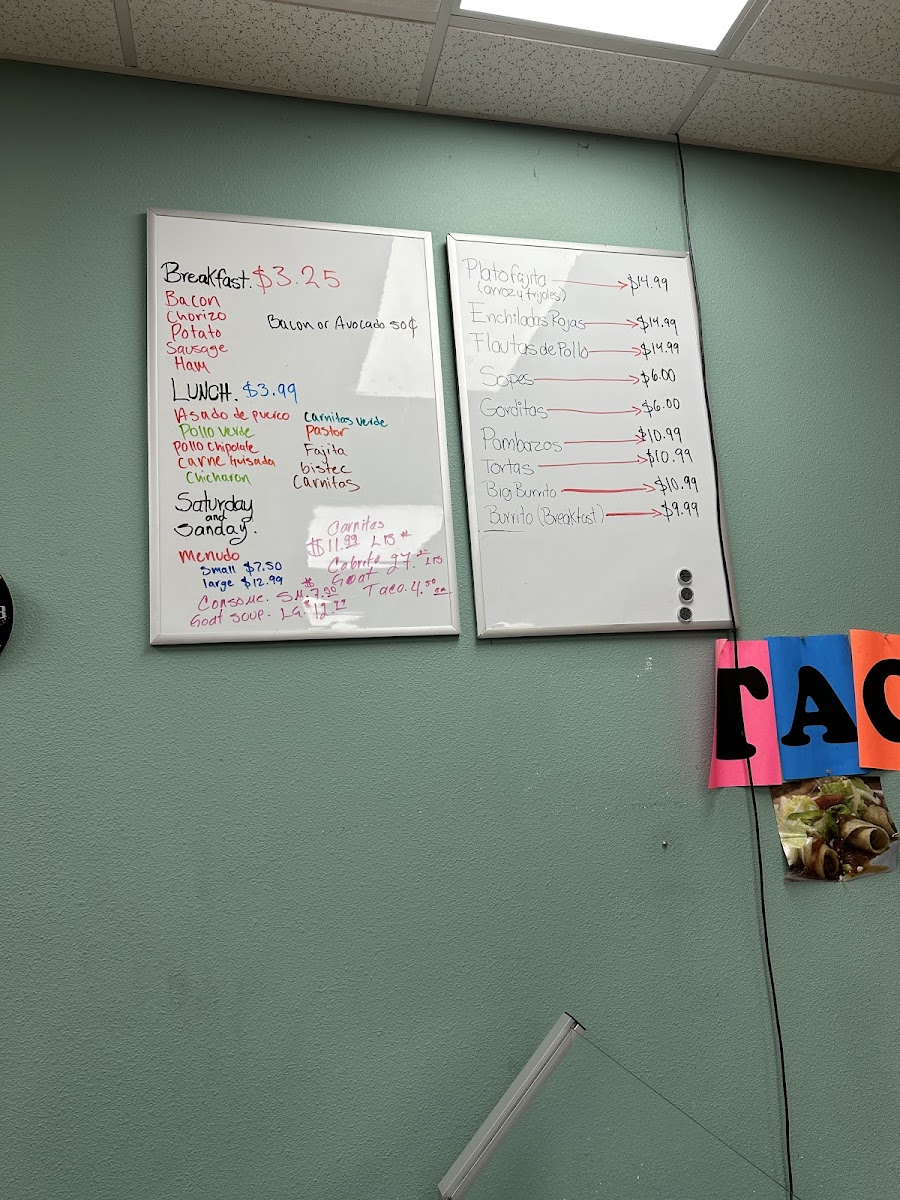 Breakfast. $3.25
Bacon
Chorizo
Potato
Bacon or Avocado 50¢
Sausage
Ham
LUNCH. $3.99
Asado de puerco
Carnitas verde
Pollo Verde
Pastor
Pollo Chipolate
Fajita
Carne Guisada
bistec
Chicharon
Carnitas
Saturday
and
Sanday.
Menudo
Small $7.50
large $12.99
Carnitas
$11.99 LBS
Cabrito 27.
Goat
Taco. 4.50
Consome. SM. 7.50
Goat soup. LG.
Plato fajita $14.99
(arroz y frijoles)
Enchiladas Rojas $14.99
Flautas de Pollo $14.99
Sopes $6.00
Gorditas $6.00
Pambazos $10.99
Tortas $10.99
Big Burrito $10.99
Burrito (Breakfast) $9.99
TAC